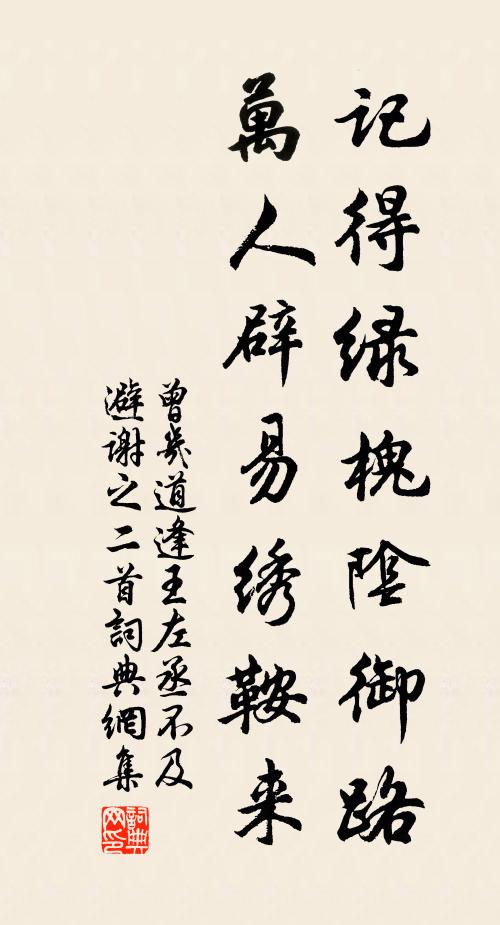 記得緑槐陰御路
萬人辟易綉鞍来
曾幾道逢王左丞不及
避謝之二首詞典網集
詞典网印